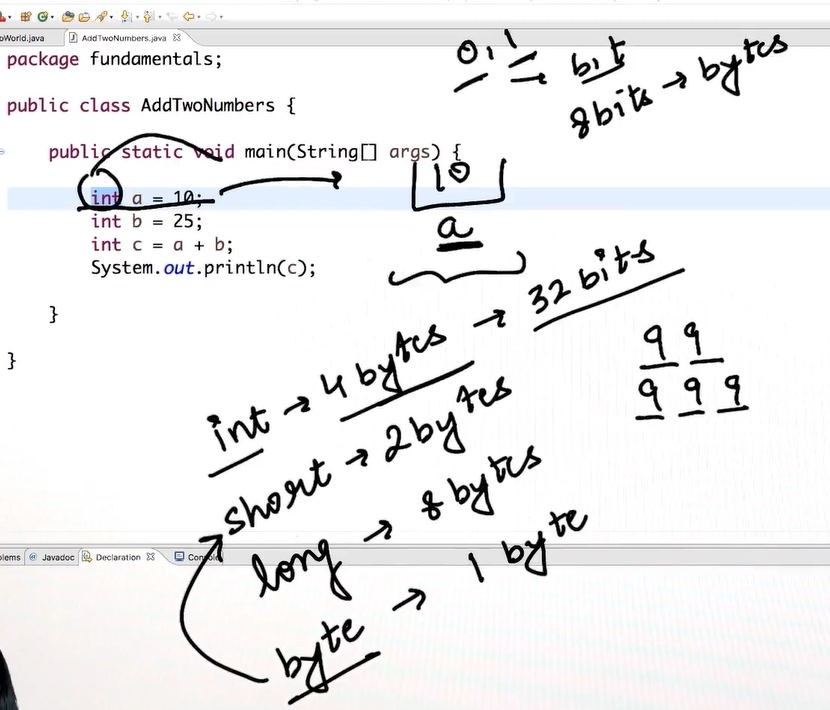 oWorld.java AddTwoNumbers.java
package fundamentals;
public class AddTwoNumbers {
public static void main(String[] args) {
int a = 10;
int b = 25;
int c = a + b;
System.out.println(c);
}
}
0,1 → bit
8bits → bytes
10
a
int → 4 bytes → 32 bits
9 9
9 9 9
short → 2 bytes
long → 8 bytes
byte → 1 byte
blems Javadoc Declaration Console